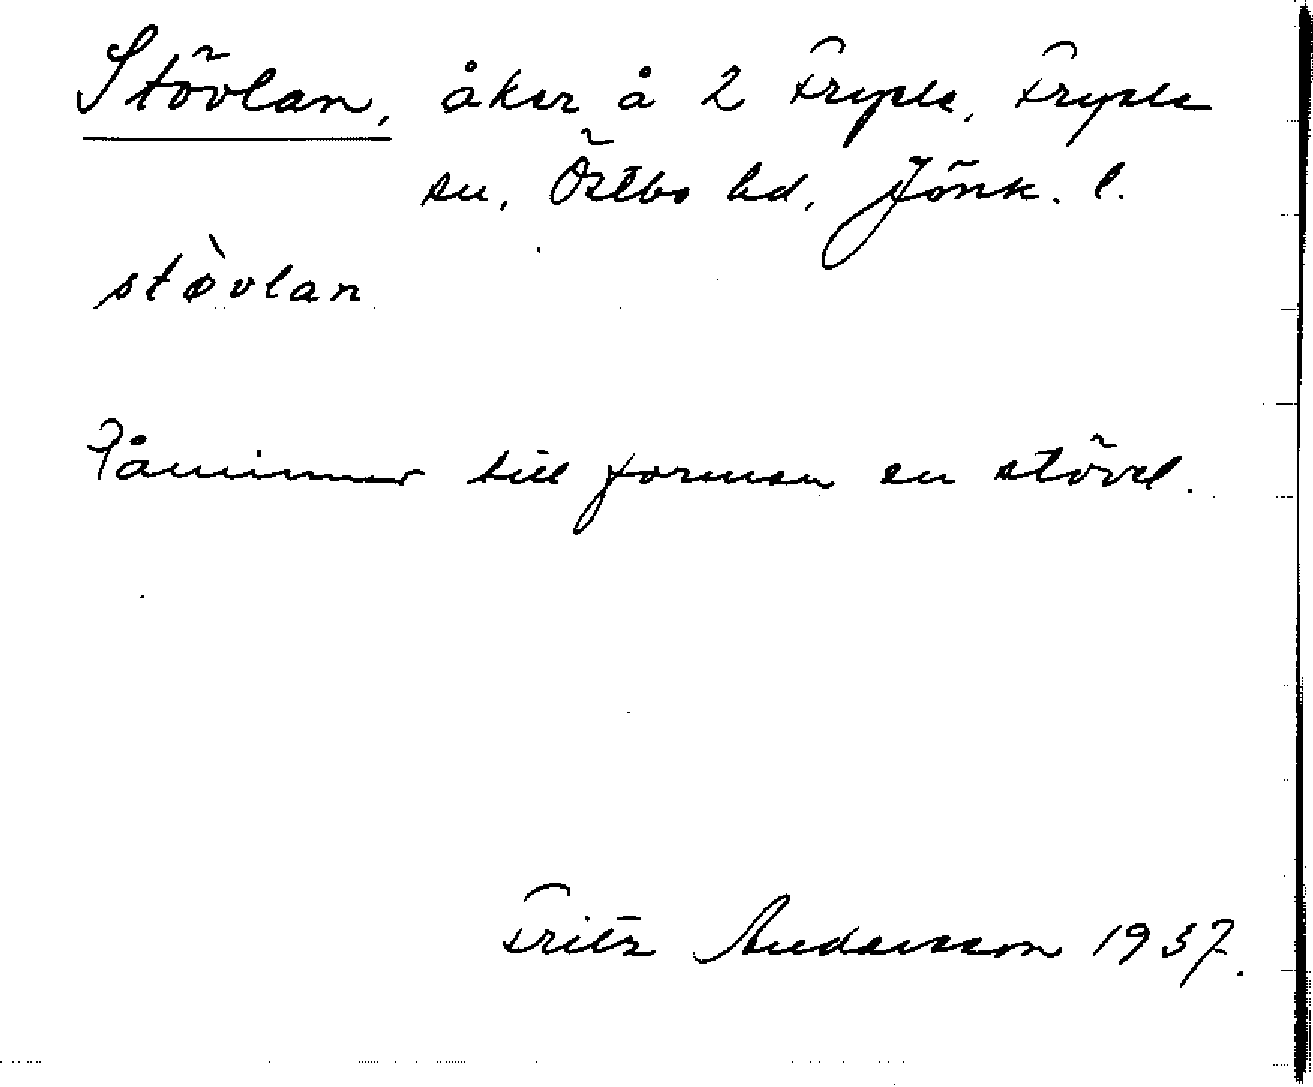 Stövlan, åker å 2 Fryele, Fryele
sn, Östbo hd, Jönk. l.
stòvlan
Påminner till formen en stövel.
Fritz Andersson 1937.